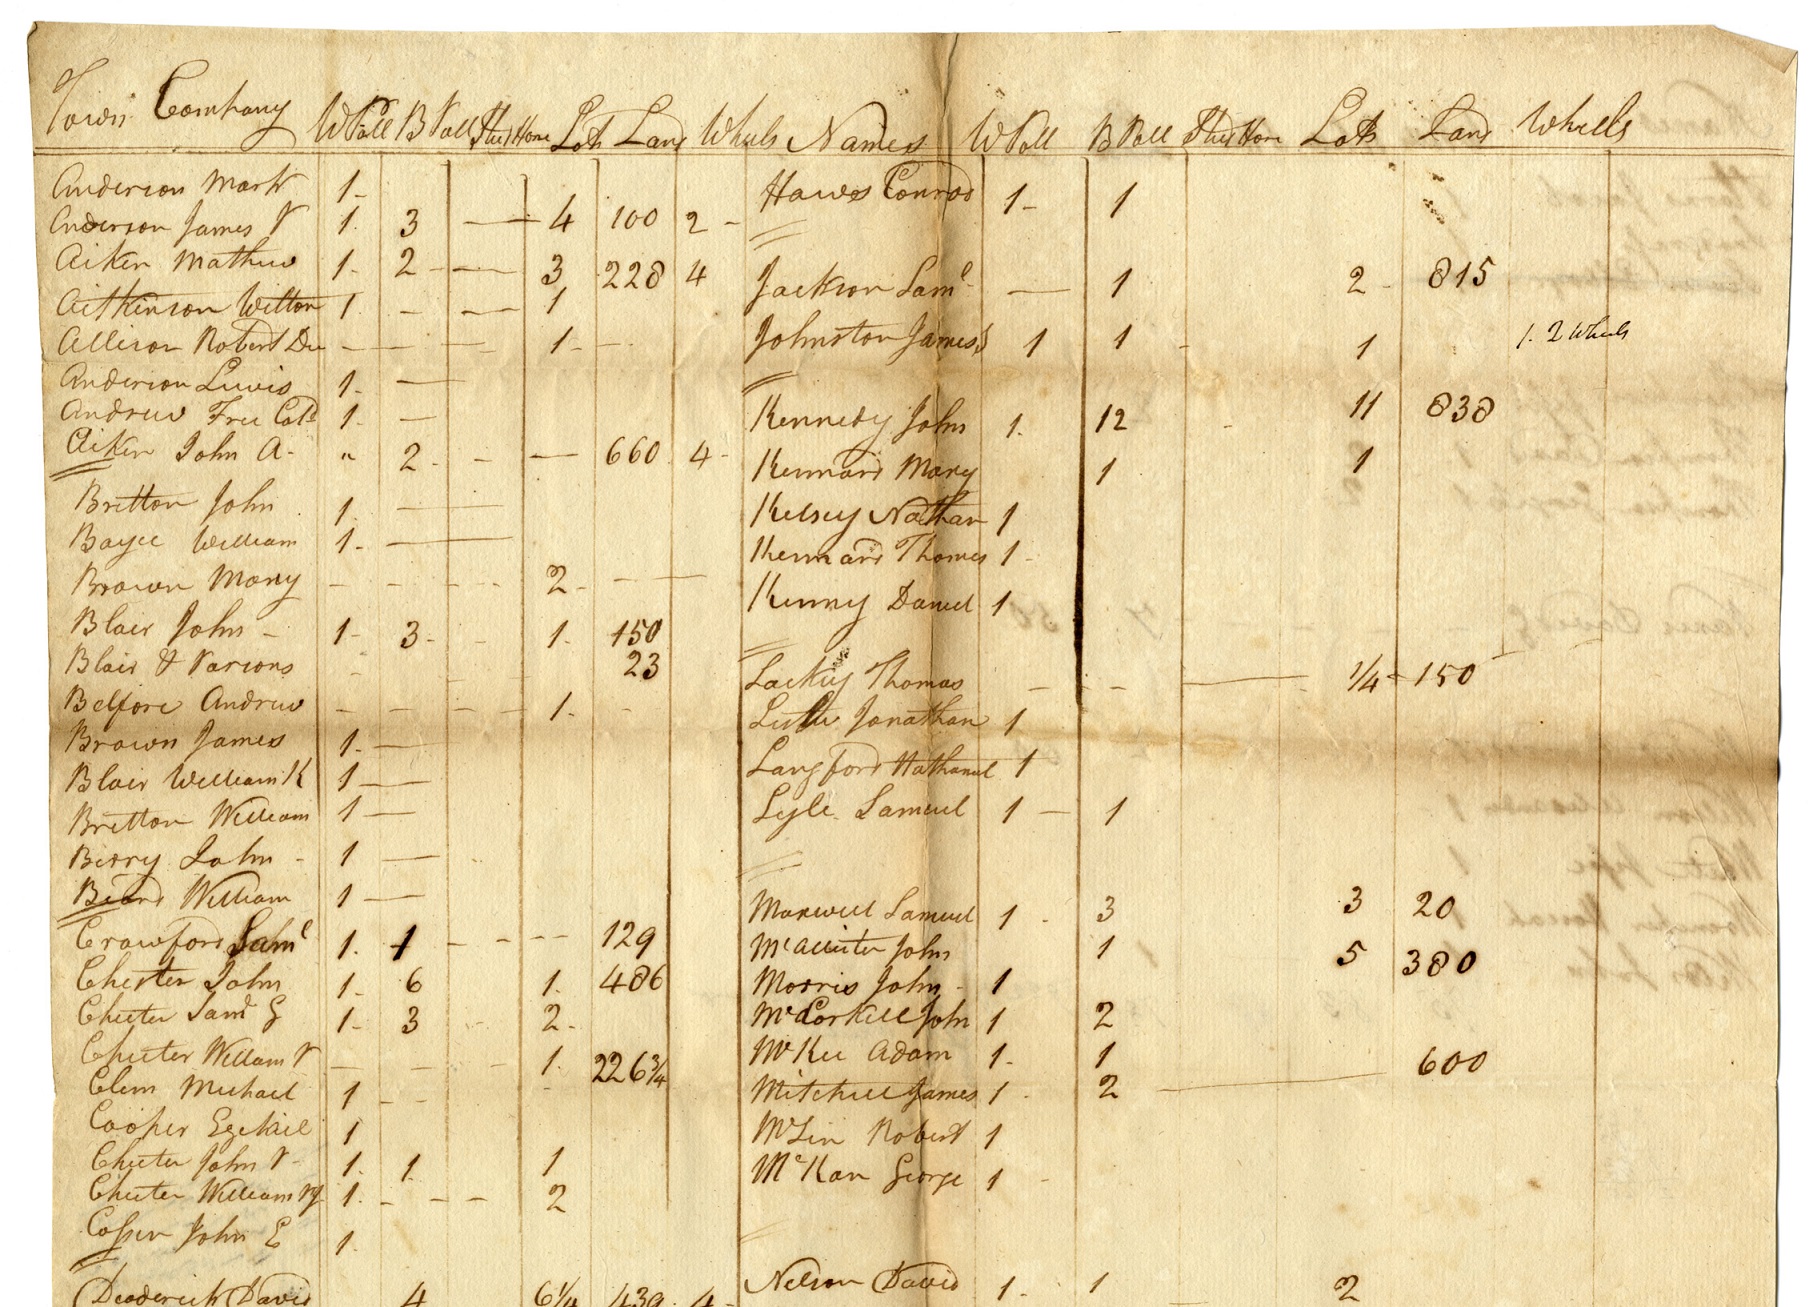 Town Company W Poll B Poll Stud Horse Lots Land Wheels
Anderson Mark 1-
Anderson James V 1. 3 — 4 100 2 -
Aiken Mathew 1. 2 - — 3 228 4
Aitkinson Witton 1. - — 1
Allison Robert Du — — — 1 - -
Anderson Lewis 1. —
Andrew Free Cold 1. —
Aiken John A- " 2 - - — 660 4 -
Britton John 1. —
Bayee William 1. —
Brown Mary - - - - 2 - — —
Blair John - 1- 3- - 1. 150
Blair & Parsons - - - 23
Belfore Andrew - - - - 1. -
Brown James 1. —
Blair William K 1 —
Britton William 1 —
Berry John - 1 —
Beard William 1 —
Crawford Saml 1. 1 - - - - 129
Chester John 1. 6 1. 486
Chester Saml G 1. 3 - 2-
Chester William P - - - 1. 226 3/4
Clem Michael 1 - -
Cooper Ezekiel 1
Chester John P- 1. 1. 1
Chester William 1. - - - 2
Cosson John E 1.
Deaderick David 4 6 1/4 439. 4-
Names W Poll B Poll Stud Horse Lots Land Wheels
Hawes Conrod 1- 1
Jackson Saml — 1 2 - 815
Johnston James 1 1 - 1 1. 2 Wheels
Kennedy John 1. 12 - 11 838
Kennard Mary 1 1
Kelsey Nathan 1
Kennard Thomas 1-
Kenny Daniel 1
Lackey Thomas - - — 1/4 - 150
Leslie Jonathan 1
Langford Nathaniel 1
Lyle Samuel 1 — 1
Maxwell Samuel 1. 3 3 20
McAllister John 1 5 380
Morris John - 1
McCorkill John 1 2
McKee Adam 1- 1 600
Mitchell James 1 - 2 —
McLin Robert 1
McKan George 1 -
Nelson David 1. 1 — 2